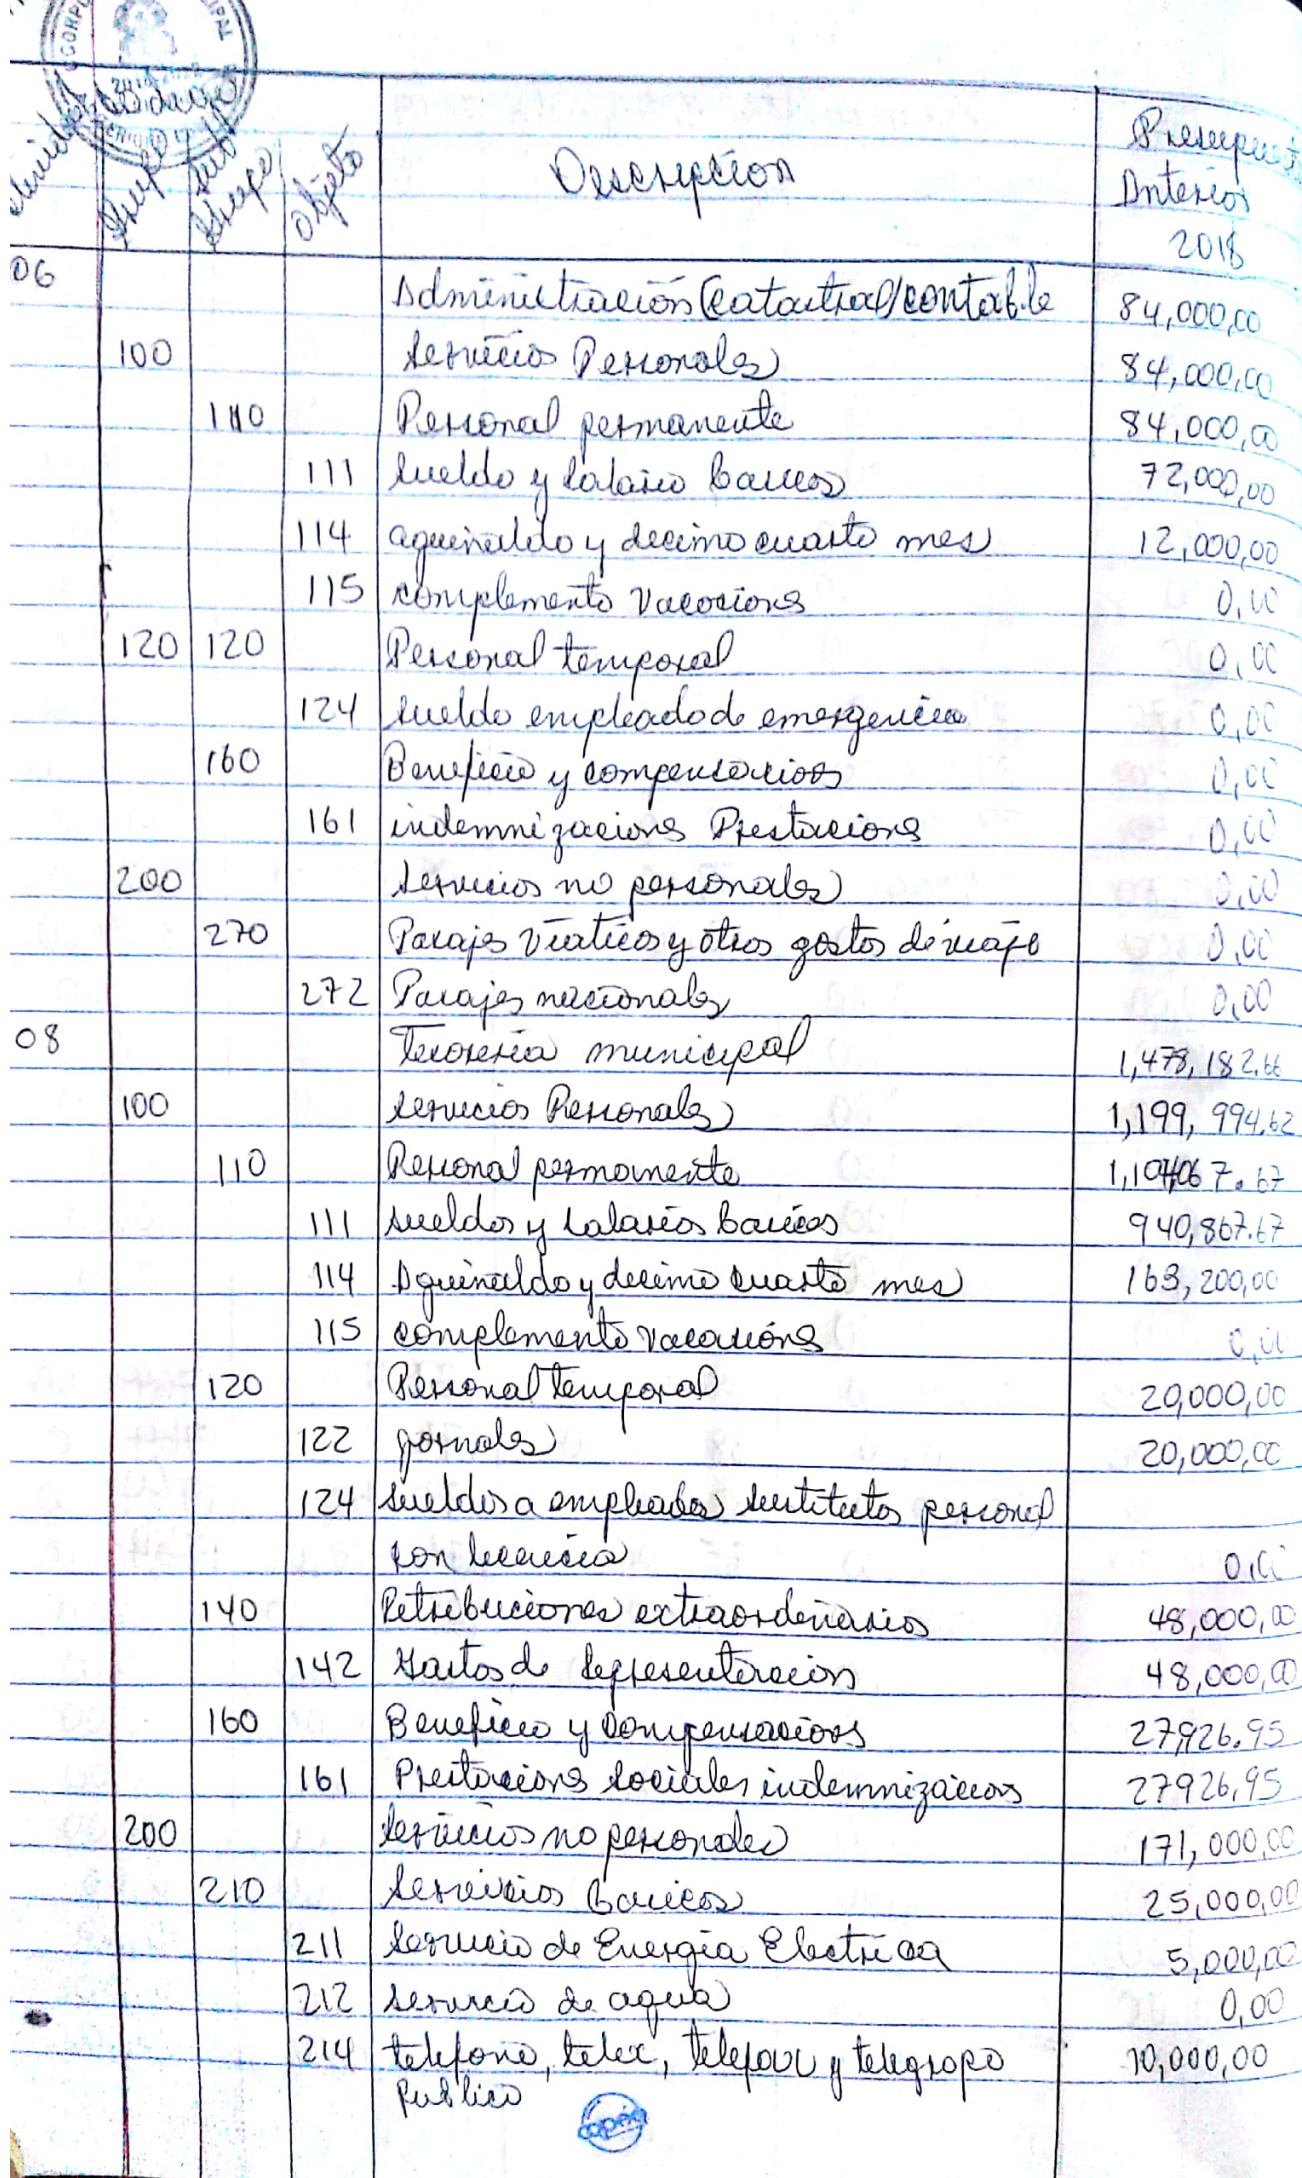 Grupo
Sub Grupo
Objeto
Descripcion
Presupuesto Anterior 2018
06 Administración Catastral/contable 84,000,00
100 Servicios Personales 84,000,00
110 Personal permanente 84,000,00
111 Sueldo y Salario Basicos 72,000,00
114 aguinaldo y decimo cuarto mes 12,000,00
115 complemento vacacions 0,00
120 120 Personal temporal 0,00
124 sueldo empleado de emergencia 0,00
160 Beneficio y compensacions 0,00
161 indemnizacions Prestacions 0,00
200 Servicios no personales 0,00
270 Pasajes Viaticos y otros gastos de viaje 0,00
272 Pasajes nacionales 0,00
08 Tesoreria municipal 1,478,182.66
100 Servicios Personales 1,199,994.62
110 Personal permanente 1,104,067.67
111 sueldos y salarios basicos 940,867.67
114 Aguinaldo y decimo cuarto mes 163,200,00
115 complemento vacacions 0,00
120 Personal temporal 20,000,00
122 jornales 20,000,00
124 Sueldos a empleados sustitutos personal
con licencia 0,00
140 Retribuciones extraordinarios 48,000,00
142 Gastos de Representacion 48,000,00
160 Beneficio y Compensacions 27,926.95
161 Prestacions sociales indemnizacions 27926,95
200 Servicios no personales 171,000,00
210 Servicios Basicos 25,000,00
211 Servicio de Energia Electrica 5,000,00
212 Servicio de agua 0,00
214 telefono, telex, telefax y telegrapo 10,000,00
publico
copán